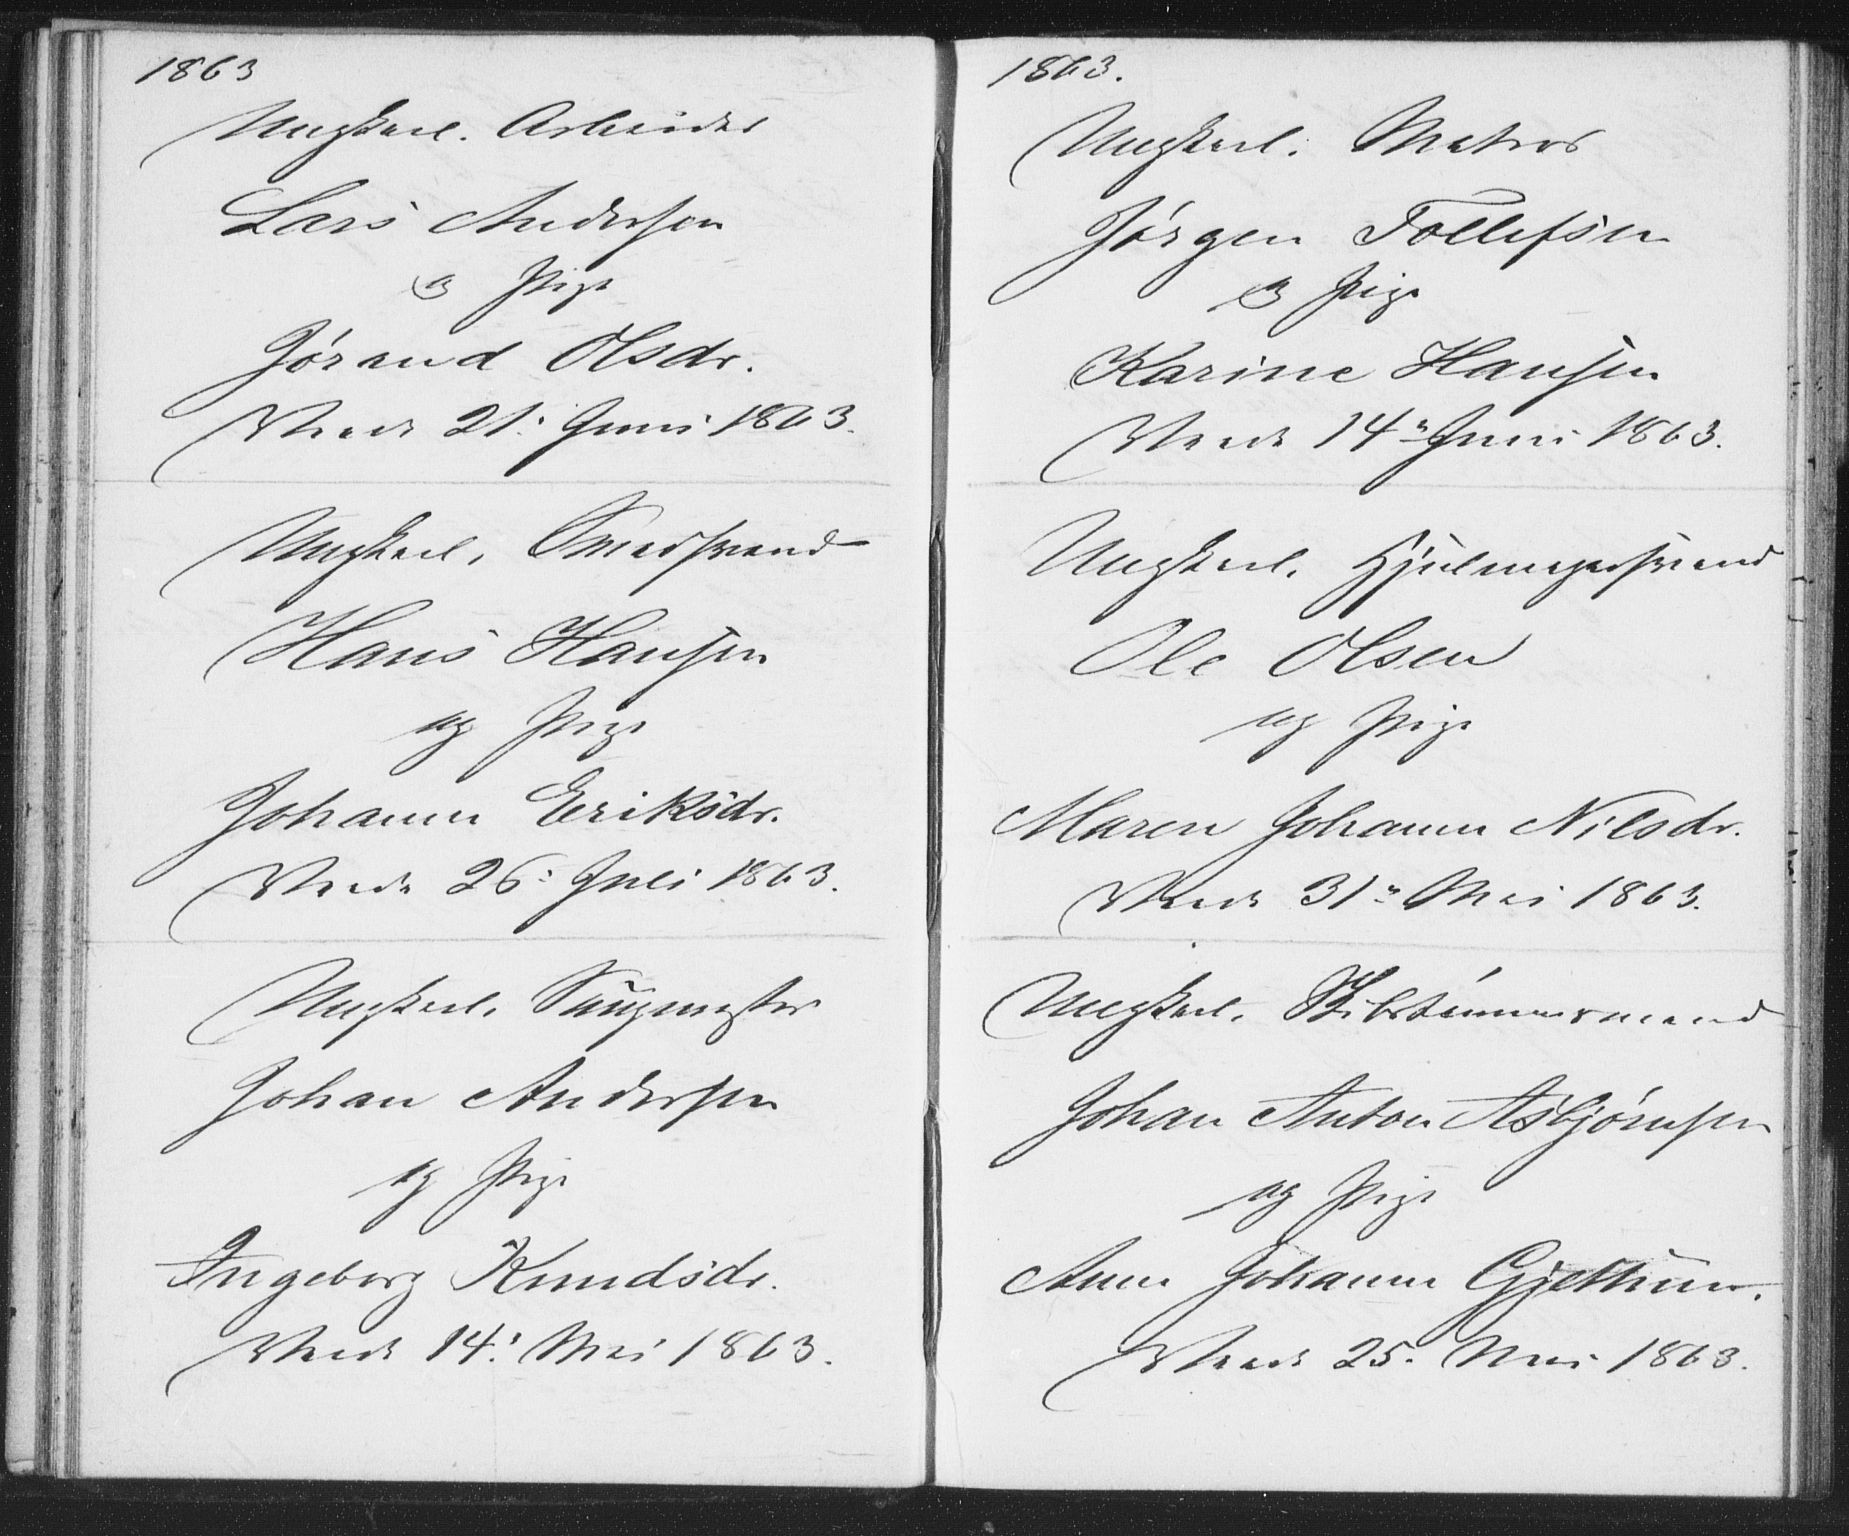 1863
Ungkarl. Arbeider
Lars Andersen
og Pige
Jørand Olsdr.
Viede 21: Juni 1863.
Ungkarl. Smedsvend
Hans Hansen
og Pige
Johanne Eriksdr.
Viede 26: Juli 1863.
Ungkarl. Saugmester
Johan Andersen
og Pige
Ingeborg Knudsdr.
Viede 14: Mai 1863.
1863.
Ungkarl. Matros
Jørgen Tollefsen
og Pige
Karine Hansen
Viede 14" Juni 1863.
Ungkarl. Hjulmagersvend
Ole Olsen
og Pige
Maren Johanne Nilsdr.
Viede 31" Mai 1863.
Ungkarl. Skibstømmermand
Johan Anton Asbjørnsen
og Pige
Anne Johanne
Viede 25. Mai 1863.